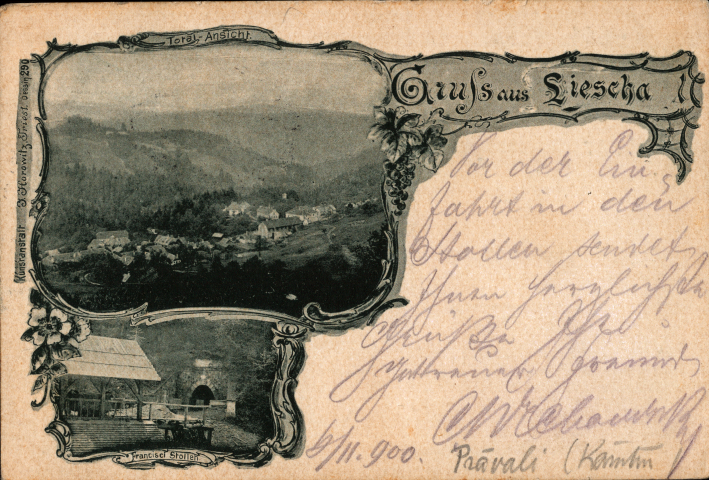 Total-Ansicht.
Gruss aus Liescha !
Kunstanstalt D. Horowitz, Triest. 290
Vor der Ein-
fahrt in den
Stollen sendet
Ihnen herzlichste
Grüße Ihr
getreuer Freund
6/II. 900.
Francisci Stollen
Prävali (Kärnten